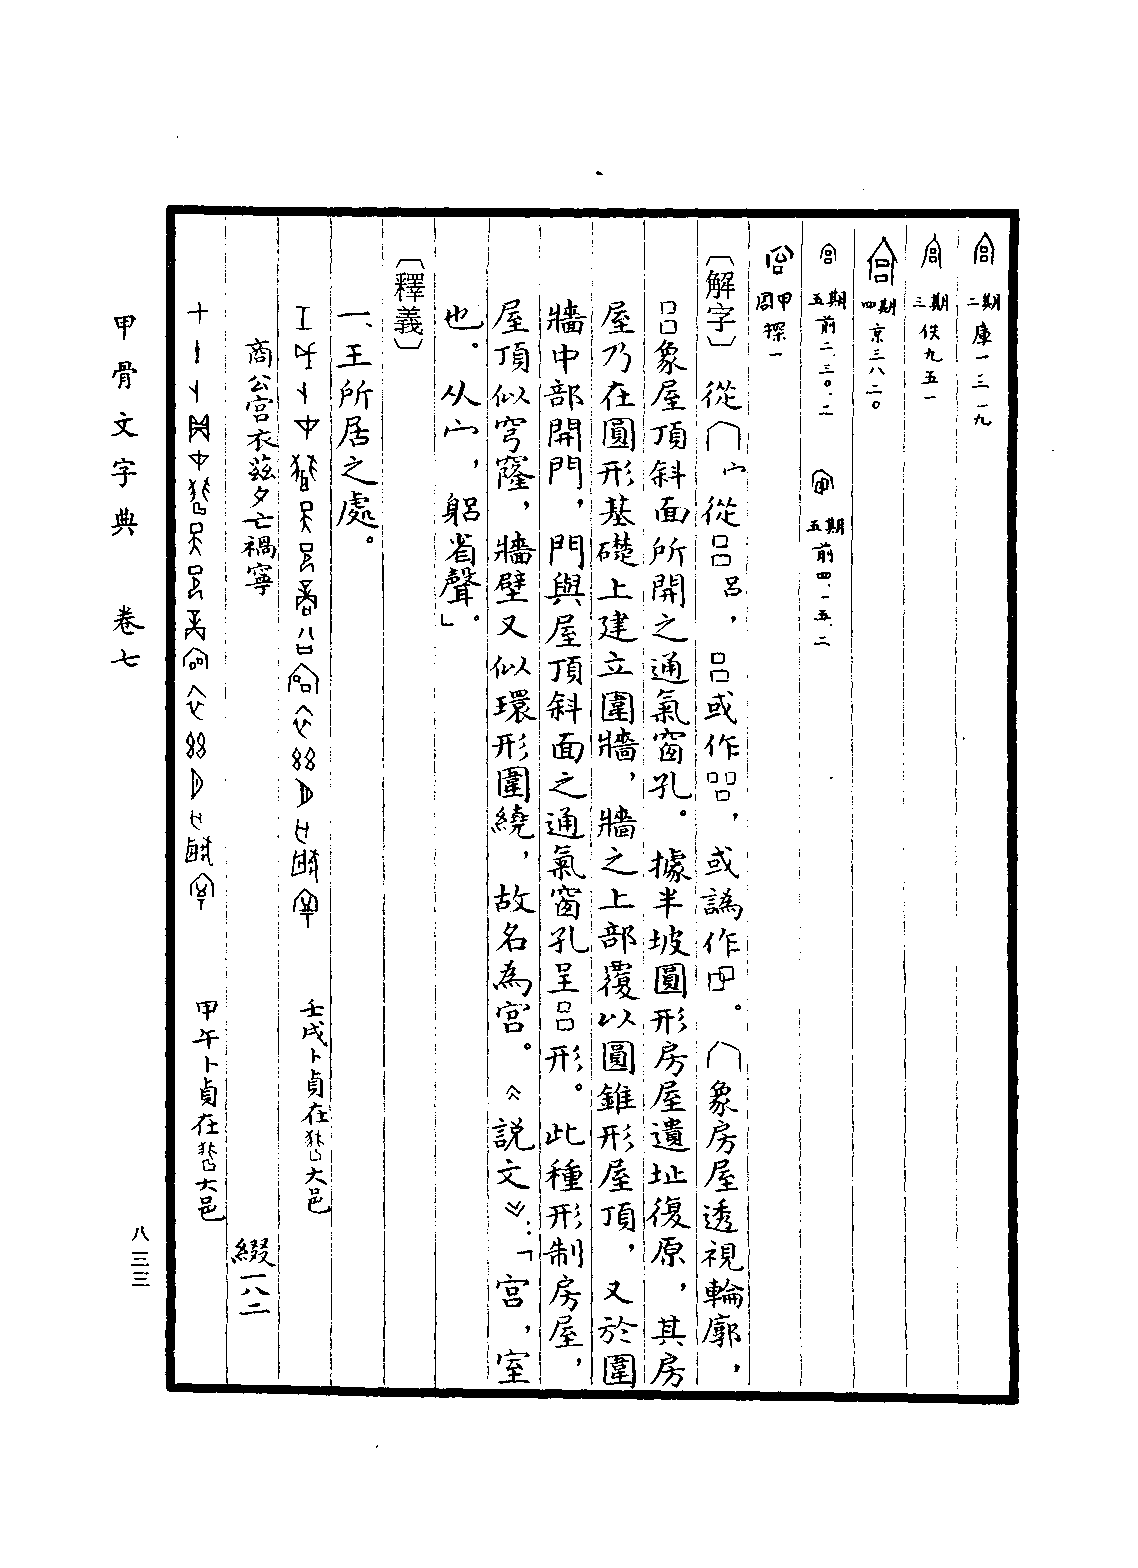 二期 庫一三一九
三期 佚九五一
四期 京三八二〇
五期 前二.三〇.二 五期 前四.一五.二
周甲 探一
〔解字〕從宀,從呂,或作,或譌作。象房屋透視輪廓,
象屋頂斜面所開之通氣窗孔。據半坡圓形房屋遺址復原,其房
屋乃在圓形基礎上建立圍牆,牆之上部覆以圓錐形屋頂,又於圍
牆中部開門,門與屋頂斜面之通氣窗孔呈形。此種形制房屋,
屋頂似穹窿,牆壁又似環形圍繞,故名為宮。《說文》:「宮,室
也。从宀,躳省聲。」
〔釋義〕
一、王所居之處。
壬戌卜貞在大邑
商公宮衣茲夕亡禍寧 綴一八二
甲午卜貞在大邑
甲骨文字典 卷七
八三三